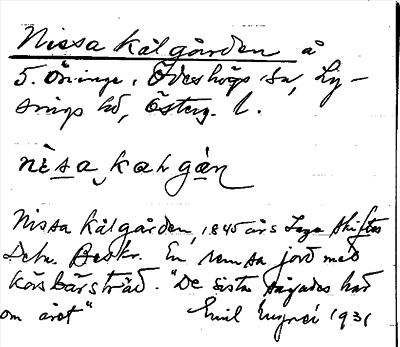 Nissa kålgården å
5. Öninge, Ödeshögs sn, Ly-
sings hd, Österg. l.
nìsa kalgán
Nissa kålgården, 1845 års Laga skiftes
Deln. Beskr. En remsa jord med
körsbärsträd. "De sista sågades här
om året" Emil 1931